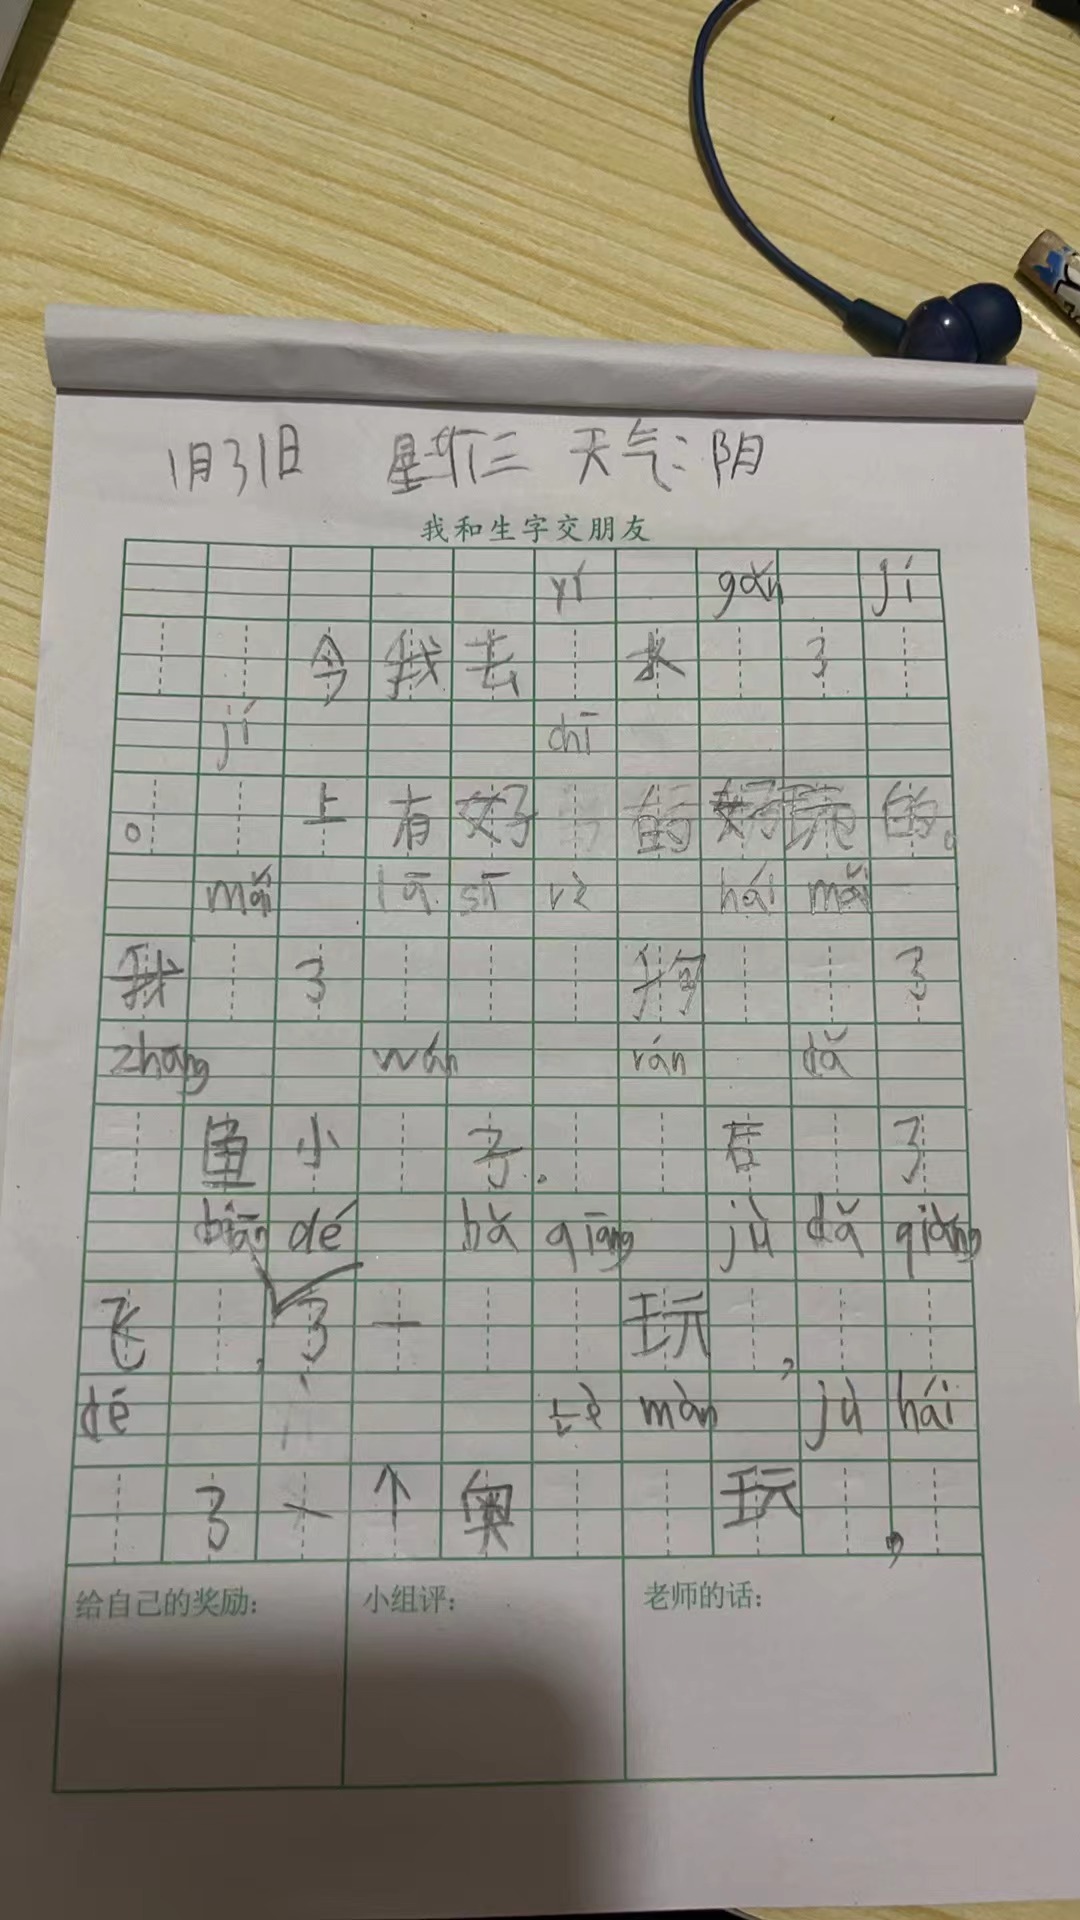 1月31日 星期三 天气:阴
我和生字交朋友
yí gǎn jí
今我去 水 了
jí chī
。 上有好 的好玩的。
mǎi lā sī rè hái mǎi
我 了 狗 了
zhāng wán rán dǎ
鱼小 子。 后 了
biān dé bǎ qiāng jù dǎ qiǎng
飞 , 了一 玩 ,
dé màn jù hái
了一个奥 玩 ,
给自己的奖励: 小组评: 老师的话: